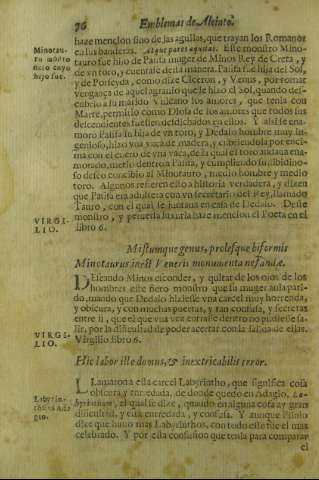 76 Emblemas de Alciato.
haze mencion sino de las aguilas, que trayan los Romanos
en sus banderas. Este monstro Mino-
tauro fue hijo de Pasifa muger de Minos Rey de Creta, y
de vn toro, y cuentase desta manera. Pasifa fue hija del Sol,
y de Perseyda, como dize Ciceron, y Venus, por tomar
vengança de aquel agrauio que le hizo el Sol, quando des-
cubrio a su marido Vulcano los amores, que tenia con
Marte, permitio como Diosa de los amores que todos sus
descendientes fuessen desdichados en ellos. Y assi se ena-
moro Pasifa la hija de vn toro, y Dedalo hombre muy in-
genioso, hizo vna vaca de madera, y cubriendola por enci-
ma con el cuero de vna vaca, de la qual el toro andaua ena-
morado, metio dentro a Pasifa, y cumpliendo su libidino-
so desseo concibio al Minotauro, medio hombre y medio
toro. Algunos refieren esto a historia verdadera, y dizen
que Pasifa era adultera con vn secretario del Rey, llamado
Tauro, con el qual se juntaua en casa de Dedalo. Deste
monstro, y peruersa luxuria haze mencion el Poeta en el
libro 6.
Minotau-
ro
cuyo
hijo fue.
VIRGI-
LIO.
Mistumque genus, prolesque biformis
Minotaurus inest Veneris monumenta nefandæ.
DEseando Minos esconder, y quitar de los ojos de los
hombres este fiero monstro que su muger auia pari-
do, mando que Dedalo hiziesse vna carcel muy horrenda,
y obscura, y con muchas puertas, y tan confusa, y secretas
entre si, que el que vna vez entrasse dentro no pudiesse sa-
lir, por la dificultad de poder acertar con la salida de ellas.
Virgilio libro 6.
VIRGI-
LIO.
Hic labor ille domus, & inextricabilis error.
LLamaron a esta carcel Labyrintho, que significa cosa
obscura y enredada, de donde quedo en Adagio, La-
byrinthum, el qual se dize, quando en alguna cosa ay gran
dificultad, y està enredada, y confusa. Y aunque Plinio
dize que huuo mas Labyrinthos, con todo este fue el mas
celebrado. Y por esta confusion que tenia para comparar
Labyrin-
thus Ada-
gio.
el